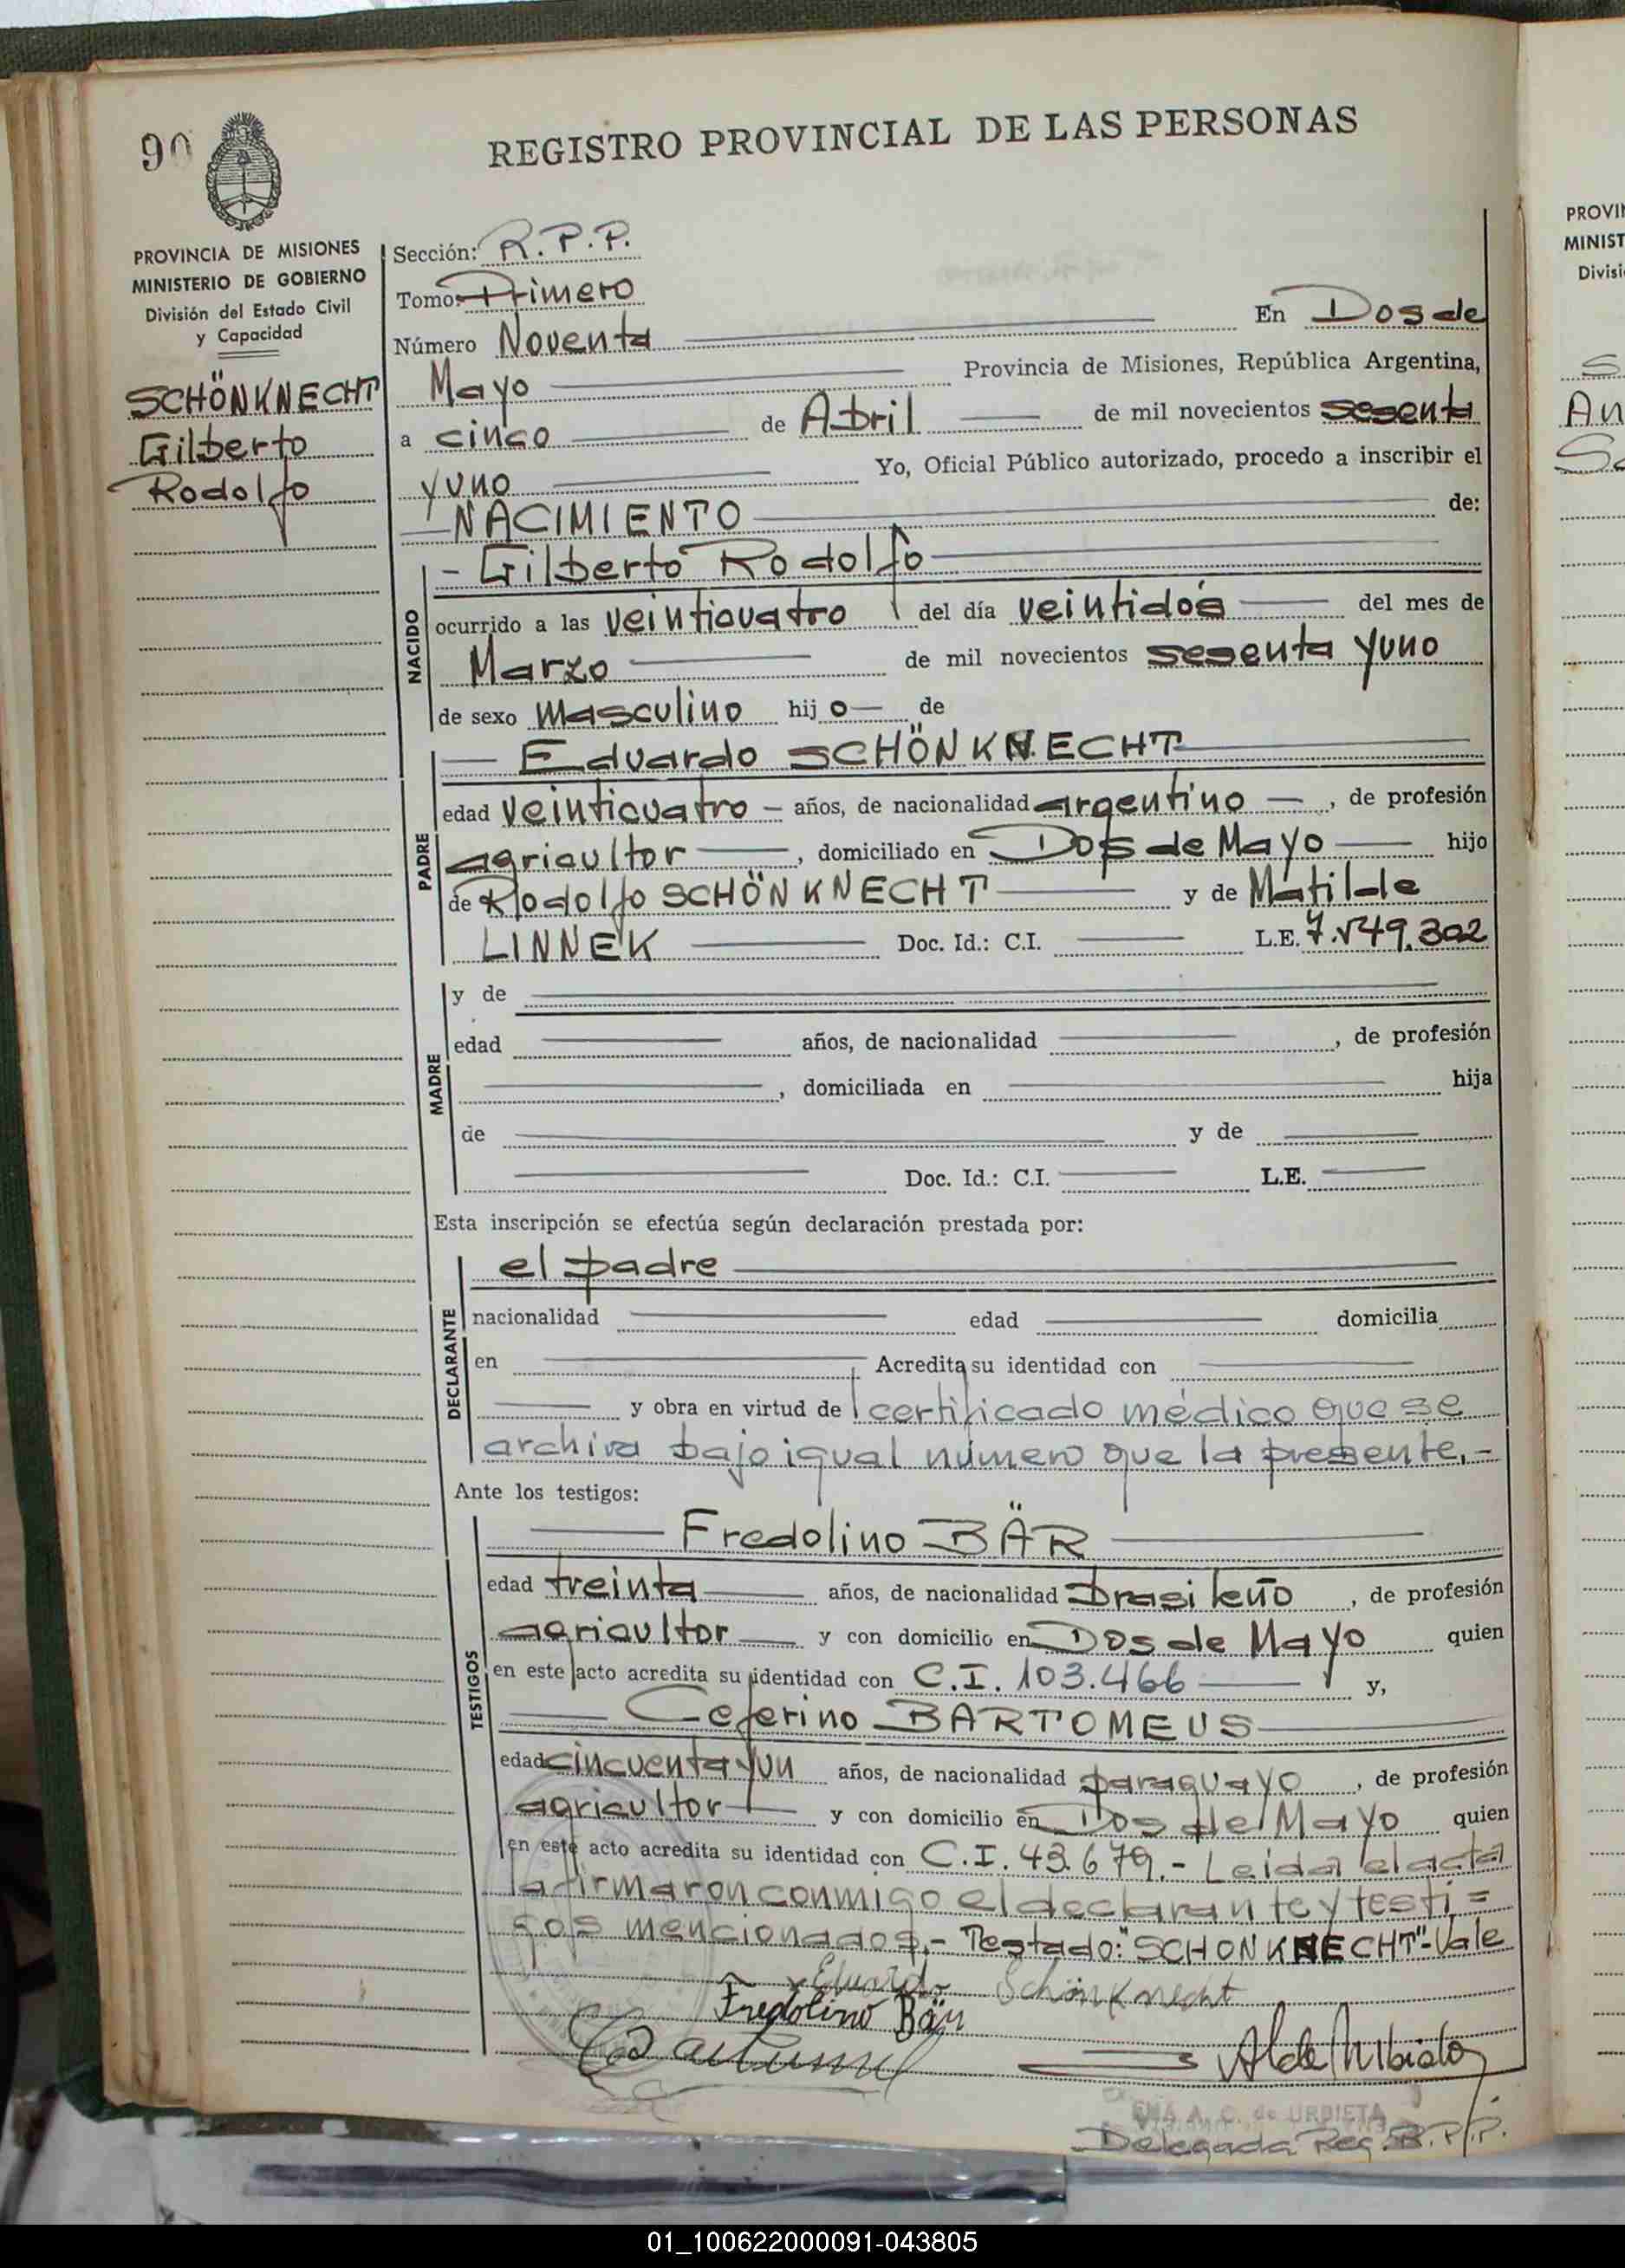 90
REGISTRO PROVINCIAL DE LAS PERSONAS
PROVINCIA DE MISIONES
MINISTERIO DE GOBIERNO
División del Estado Civil
y Capacidad
SCHÖNKNECHT
Gilberto
Rodolfo
Sección: R.P.P.
Tomo: Primero
Número Noventa En Dos de
Mayo Provincia de Misiones, República Argentina,
a cinco de Abril de mil novecientos sesenta
y uno Yo, Oficial Público autorizado, procedo a inscribir el
NACIMIENTO de:
NACIDO
- Gilberto Rodolfo
ocurrido a las veinticuatro del día veintidós del mes de
Marzo de mil novecientos sesenta y uno
de sexo masculino hij o de
PADRE
Eduardo SCHÖNKNECHT
edad veinticuatro años, de nacionalidad argentino, de profesión
agricultor, domiciliado en Dos de Mayo hijo
de Rodolfo SCHÖNKNECHT y de Matilde
LINNEK Doc. Id.: C.I. L.E. 7.549.302
MADRE
y de
edad años, de nacionalidad , de profesión
, domiciliada en hija
de y de
Doc. Id.: C.I. L.E.
Esta inscripción se efectúa según declaración prestada por:
DECLARANTE
el padre
nacionalidad edad domicilia
en Acredita su identidad con
y obra en virtud de certificado médico que se
archiva bajo igual número que la presente.-
Ante los testigos:
TESTIGOS
Fredolino BÄR
edad treinta años, de nacionalidad brasileño, de profesión
agricultor y con domicilio en Dos de Mayo quien
en este acto acredita su identidad con C.I. 103.466 y,
Ceferino BARTOMEUS
edad cincuenta y un años, de nacionalidad paraguayo, de profesión
agricultor y con domicilio en Dos de Mayo quien
en este acto acredita su identidad con C.I. 43.679.- Leida el acta
la firmaron conmigo el declarante y testi=
gos mencionados.- Testado: "SCHONKNECHT"-Vale
Eduardo Schönknecht
Fredolino Bär
A. C. de URBIETA
Delegada Reg. R.P.P.
PROVIN
MINIST
Divisi
S
An
01_100622000091-043805